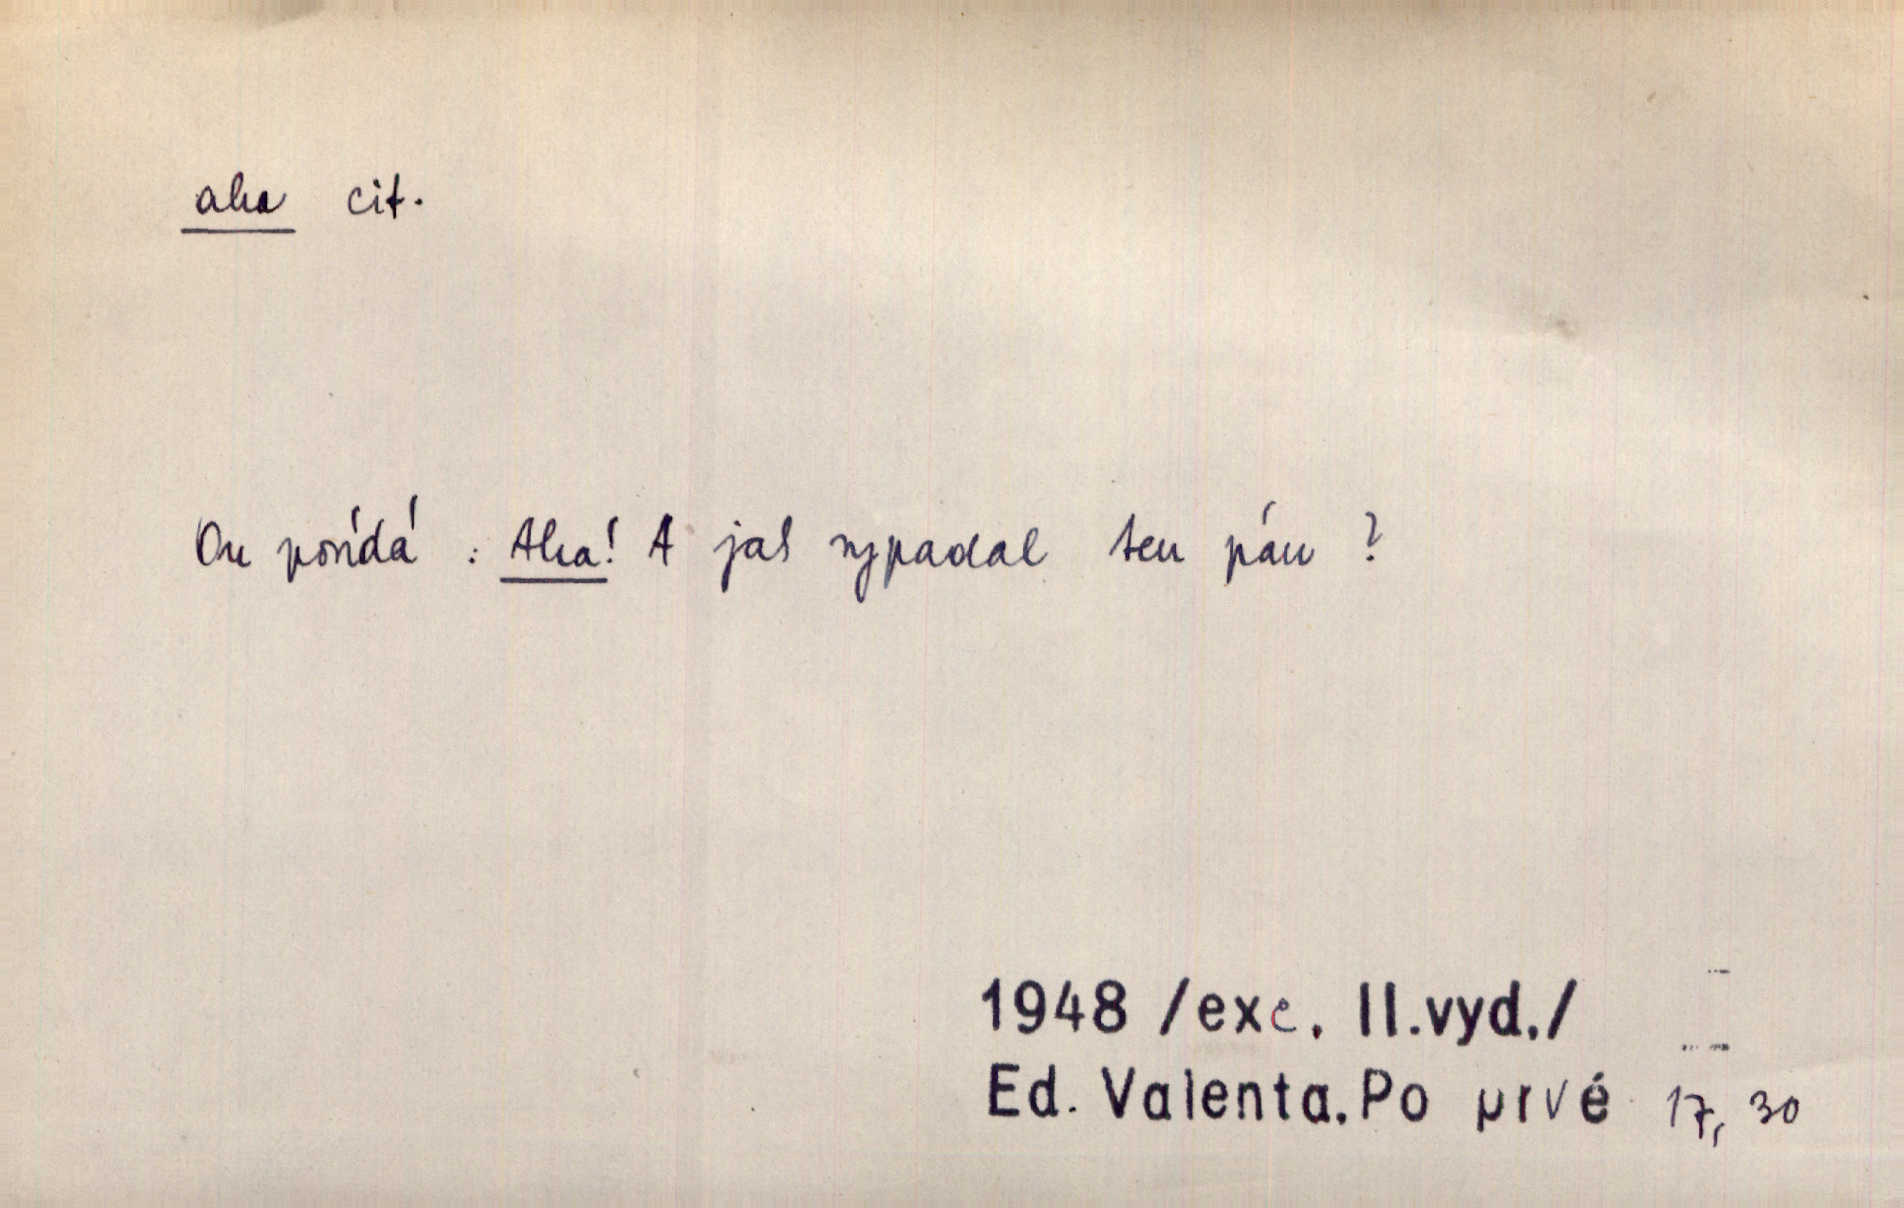 aha cit.
On povídá : Aha! A jak vypadal ten pán ?
1948 /exc. II.vyd./
Ed. Valenta.Po prvé 17, 30